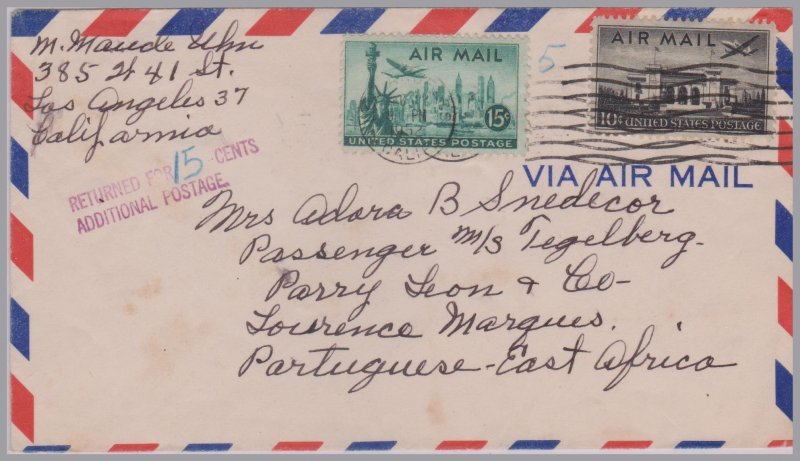 M. Maude Uhn
385 W 41 St.
Los Angeles 37
California
RETURNED FOR 15 CENTS
ADDITIONAL POSTAGE
AIR MAIL
15¢
UNITED STATES POSTAGE
5
AIR MAIL
10¢ UNITED STATES POSTAGE
VIA AIR MAIL
Mrs Adora B Snedecor
Passenger M/S Tegelberg-
Parry Leon & Co-
Lourence Marques.
Portuguese-East Africa